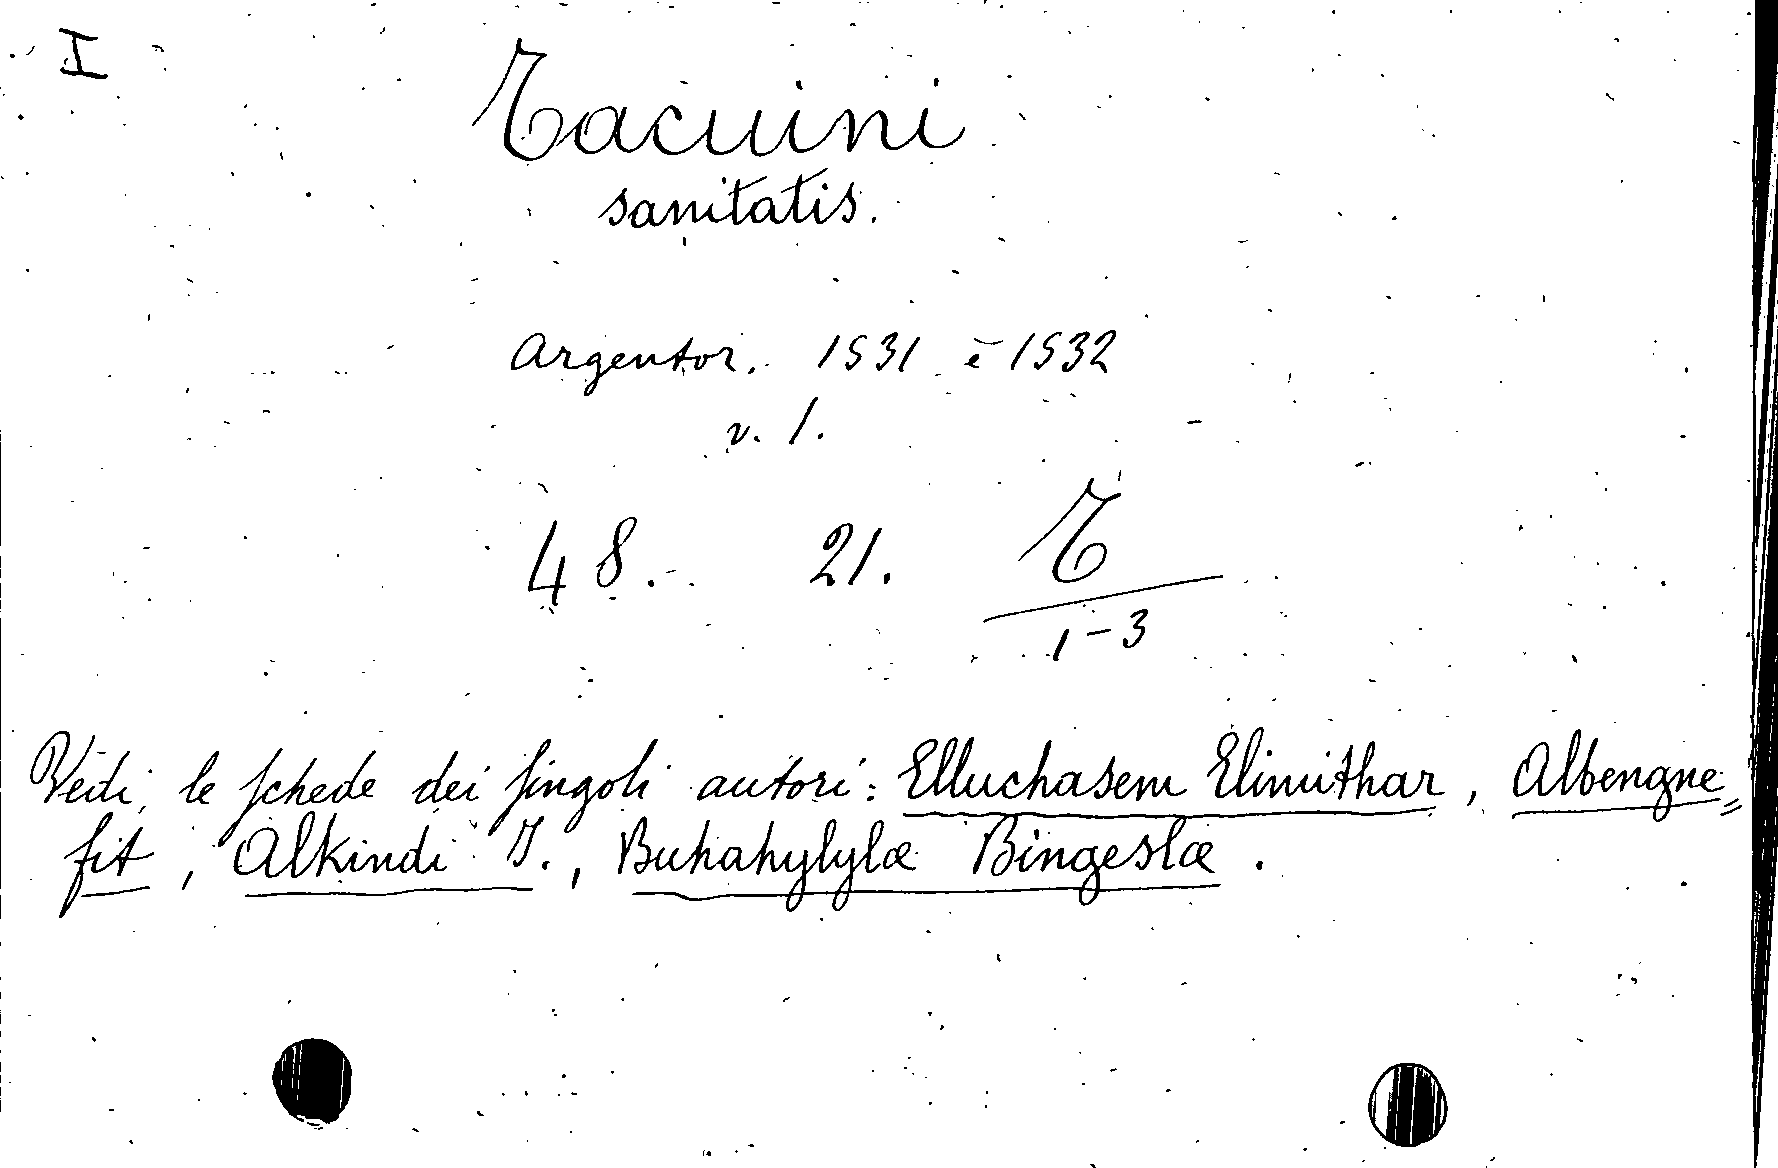 I
Tacuini
sanitatis.
Argentor. 1531 e 1532
v. 1.
48. 21. T
1-3
Vedi le schede dei singoli autori: Elluchasem Elimithar, Albengne=
fit, Alkindi J., Buhahylylæ Bingeslæ.